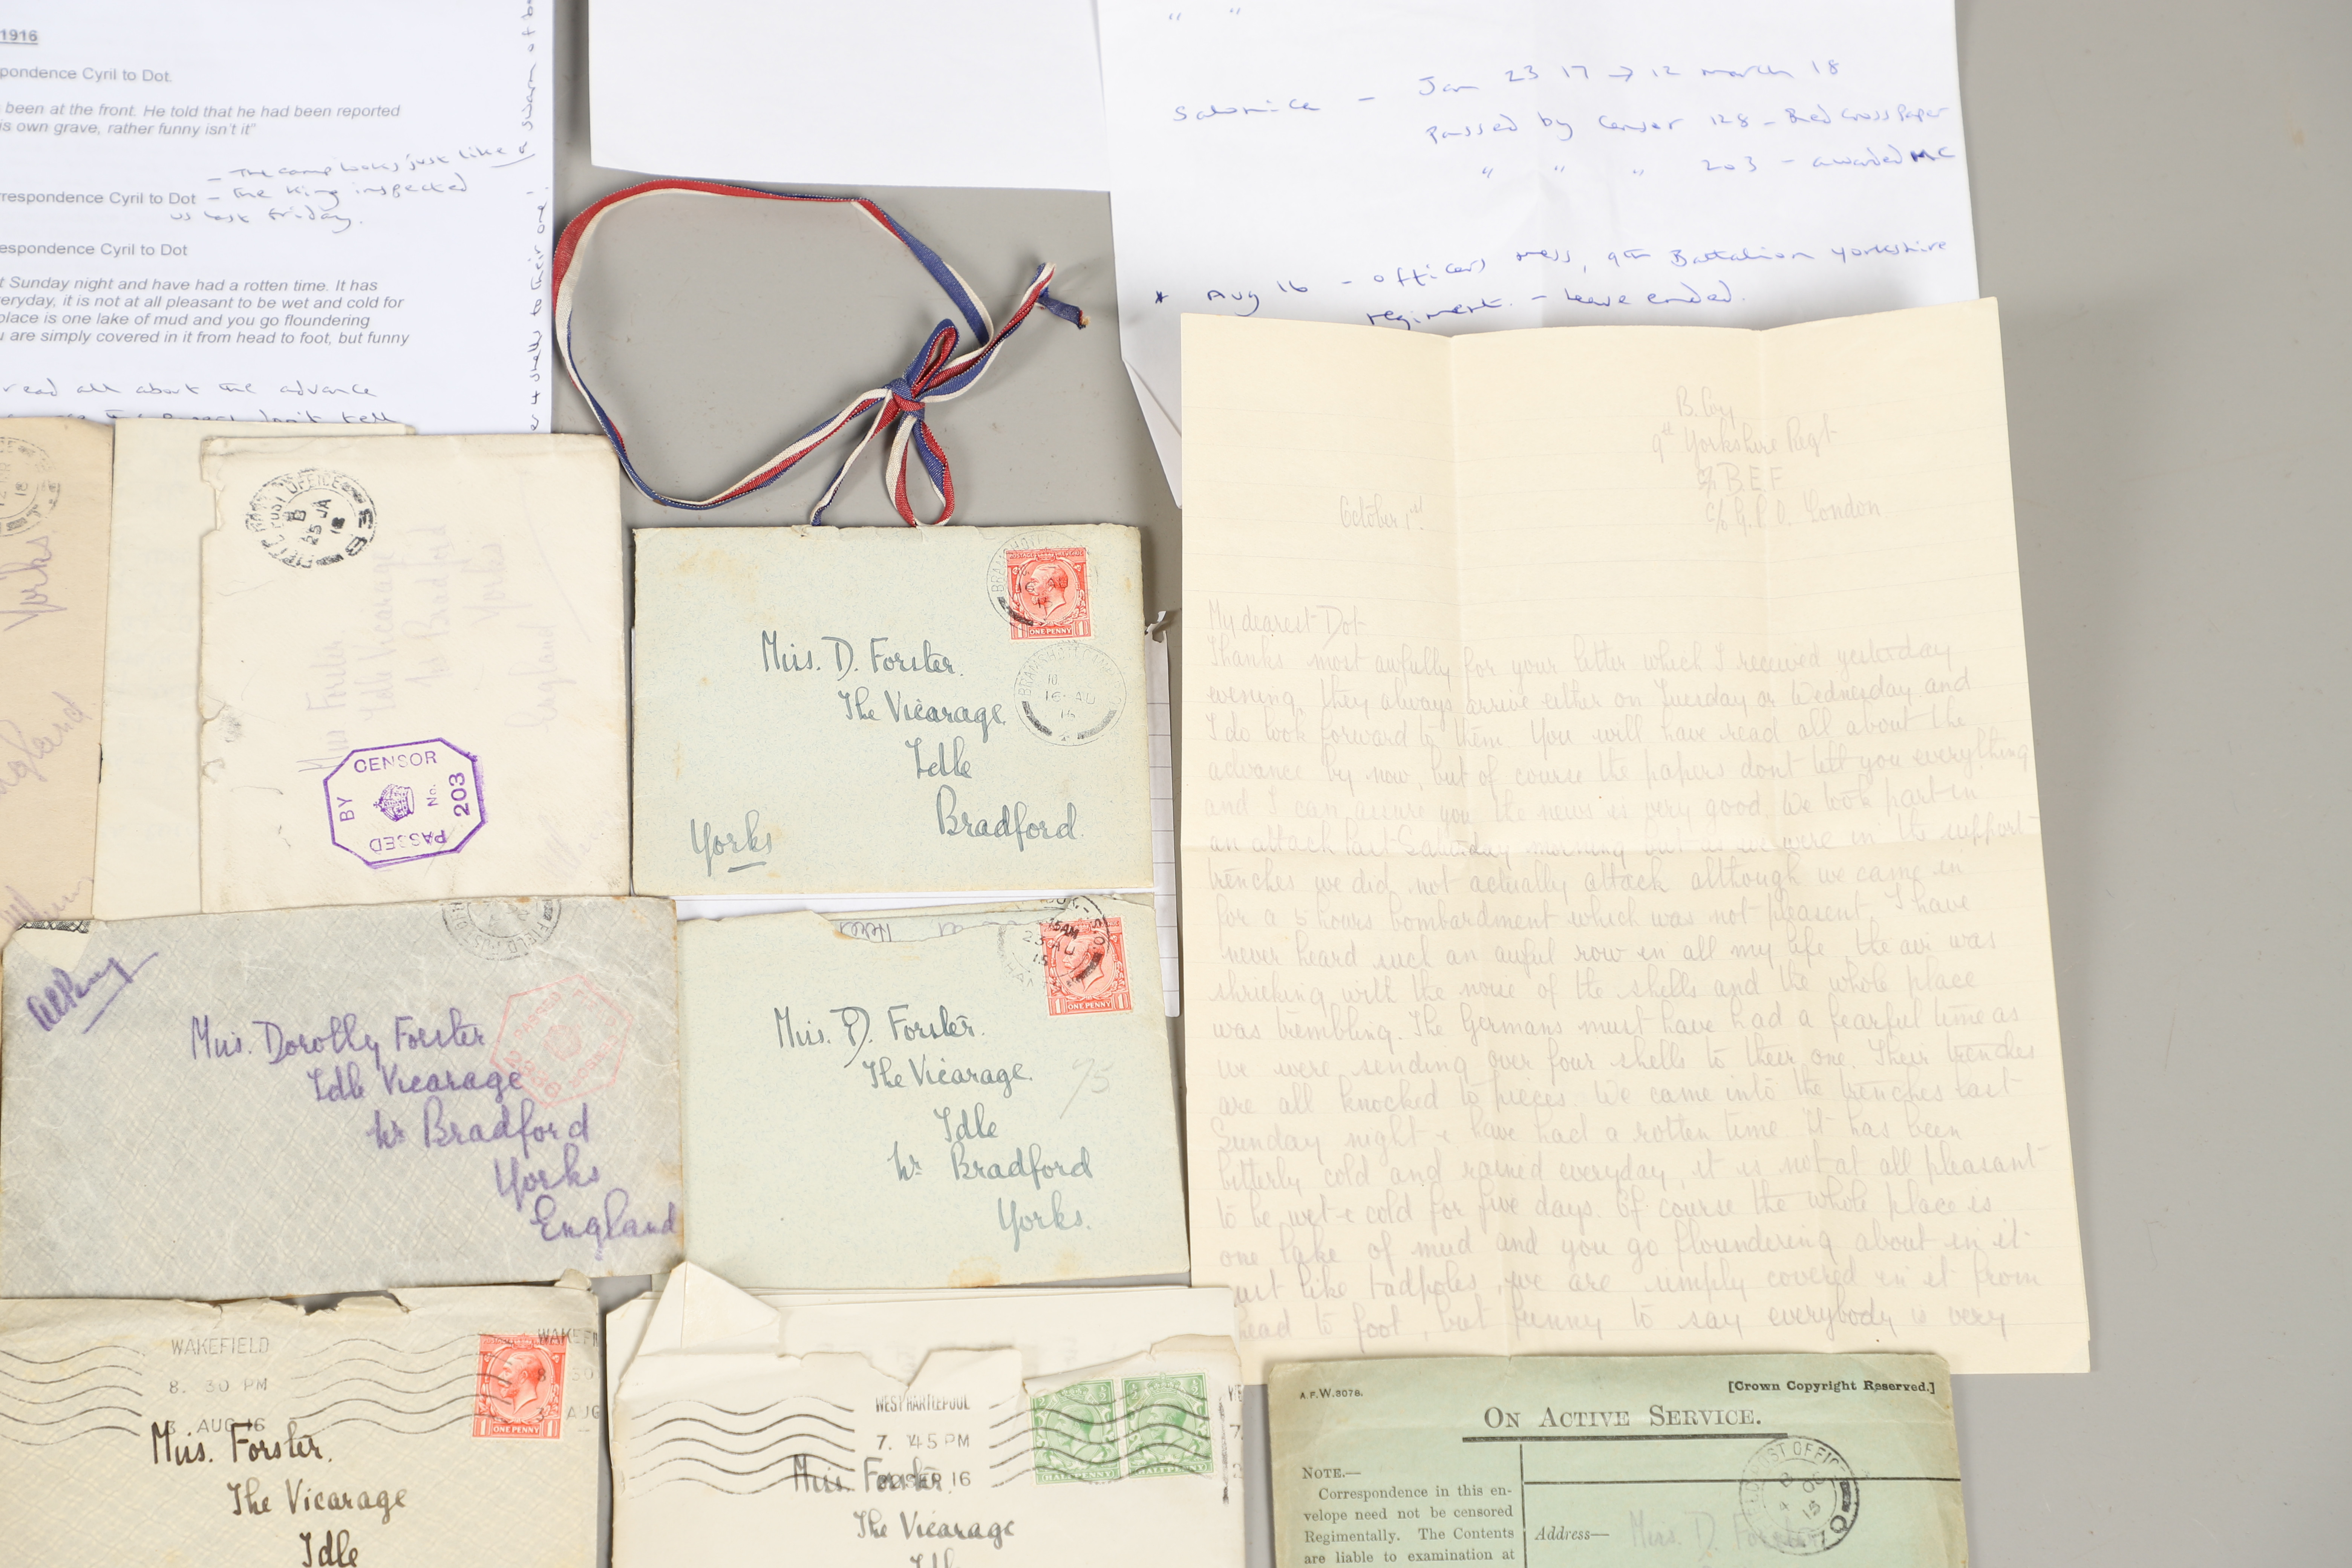 1916
pondence Cyril to Dot.
been at the front. He told that he had been reported
is own grave, rather funny isn't it"
- The camp looks just like a swarm of
rrespondence Cyril to Dot - The King inspected
us last Friday.
espondence Cyril to Dot
t Sunday night and have had a rotten time. It has
veryday, it is not at all pleasant to be wet and cold for
place is one lake of mud and you go floundering
u are simply covered in it from head to foot, but funny
read all about the advance
don't tell
4 shells to their one!
" "
Salonica - Jan 23 17 → 12 March 18
Passed by Censor 128 - Red Cross Paper
" " " 203 - awarded MC
* Aug 16 - officers mess, 9th Battalion Yorkshire
regiment. - leave ended.
B. Coy
9th Yorkshire Regt
B.E.F
c/o G.P.O. London
October 1st.
My dearest Dot
Thanks most awfully for your letter which I received yesterday
evening, they always arrive either on Tuesday or Wednesday and
I do look forward to them. You will have read all about the
advance by now, but of course the papers dont tell you everything
and I can assure you the news is very good. We took part in
an attack last Saturday morning but as we were in the support
trenches we did not actually attack although we came in
for a 5 hours bombardment which was not pleasent. I have
never heard such an awful row in all my life, the air was
shrieking with the noise of the shells and the whole place
was trembling. The Germans must have had a fearful time as
we were sending over four shells to their one. Their trenches
are all knocked to pieces. We came into the trenches last
Sunday night & have had a rotten time. It has been
bitterly cold and rained everyday, it is not at all pleasant
to be wet & cold for five days. Of course the whole place is
one lake of mud and you go floundering about in it
just like tadpoles, we are simply covered in it from
head to foot, but funny to say everybody is very
Yorks
England
FIELD POST OFFICE
B
25 JA
18
Miss Forster
Idle Vicarage
Nr Bradford
Yorks
England
PASSED BY CENSOR
No. 203
16 AU
ONE PENNY
16 AU
Miss. D. Forster.
The Vicarage
Idle
Bradford.
Yorks
Miss. Dorothy Forster
Idle Vicarage
Nr Bradford
Yorks
England
ONE PENNY
Miss. D. Forster.
The Vicarage.
Idle
Nr Bradford
Yorks.
75
WAKEFIELD
8. 30 PM
3 AUG 16
ONE PENNY
Miss. Forster.
The Vicarage
Idle
WEST HARTLEPOOL
7. 45 PM
SEP 16
HALFPENNY HALFPENNY
Miss. Forster.
The Vicarage
Idle
A.F.W.3078.
[Crown Copyright Reserved.]
ON ACTIVE SERVICE.
NOTE.—
Correspondence in this en-
velope need not be censored
Regimentally. The Contents
are liable to examination at
POST OFFICE
4 OC
15
Address— Miss. D. Forster